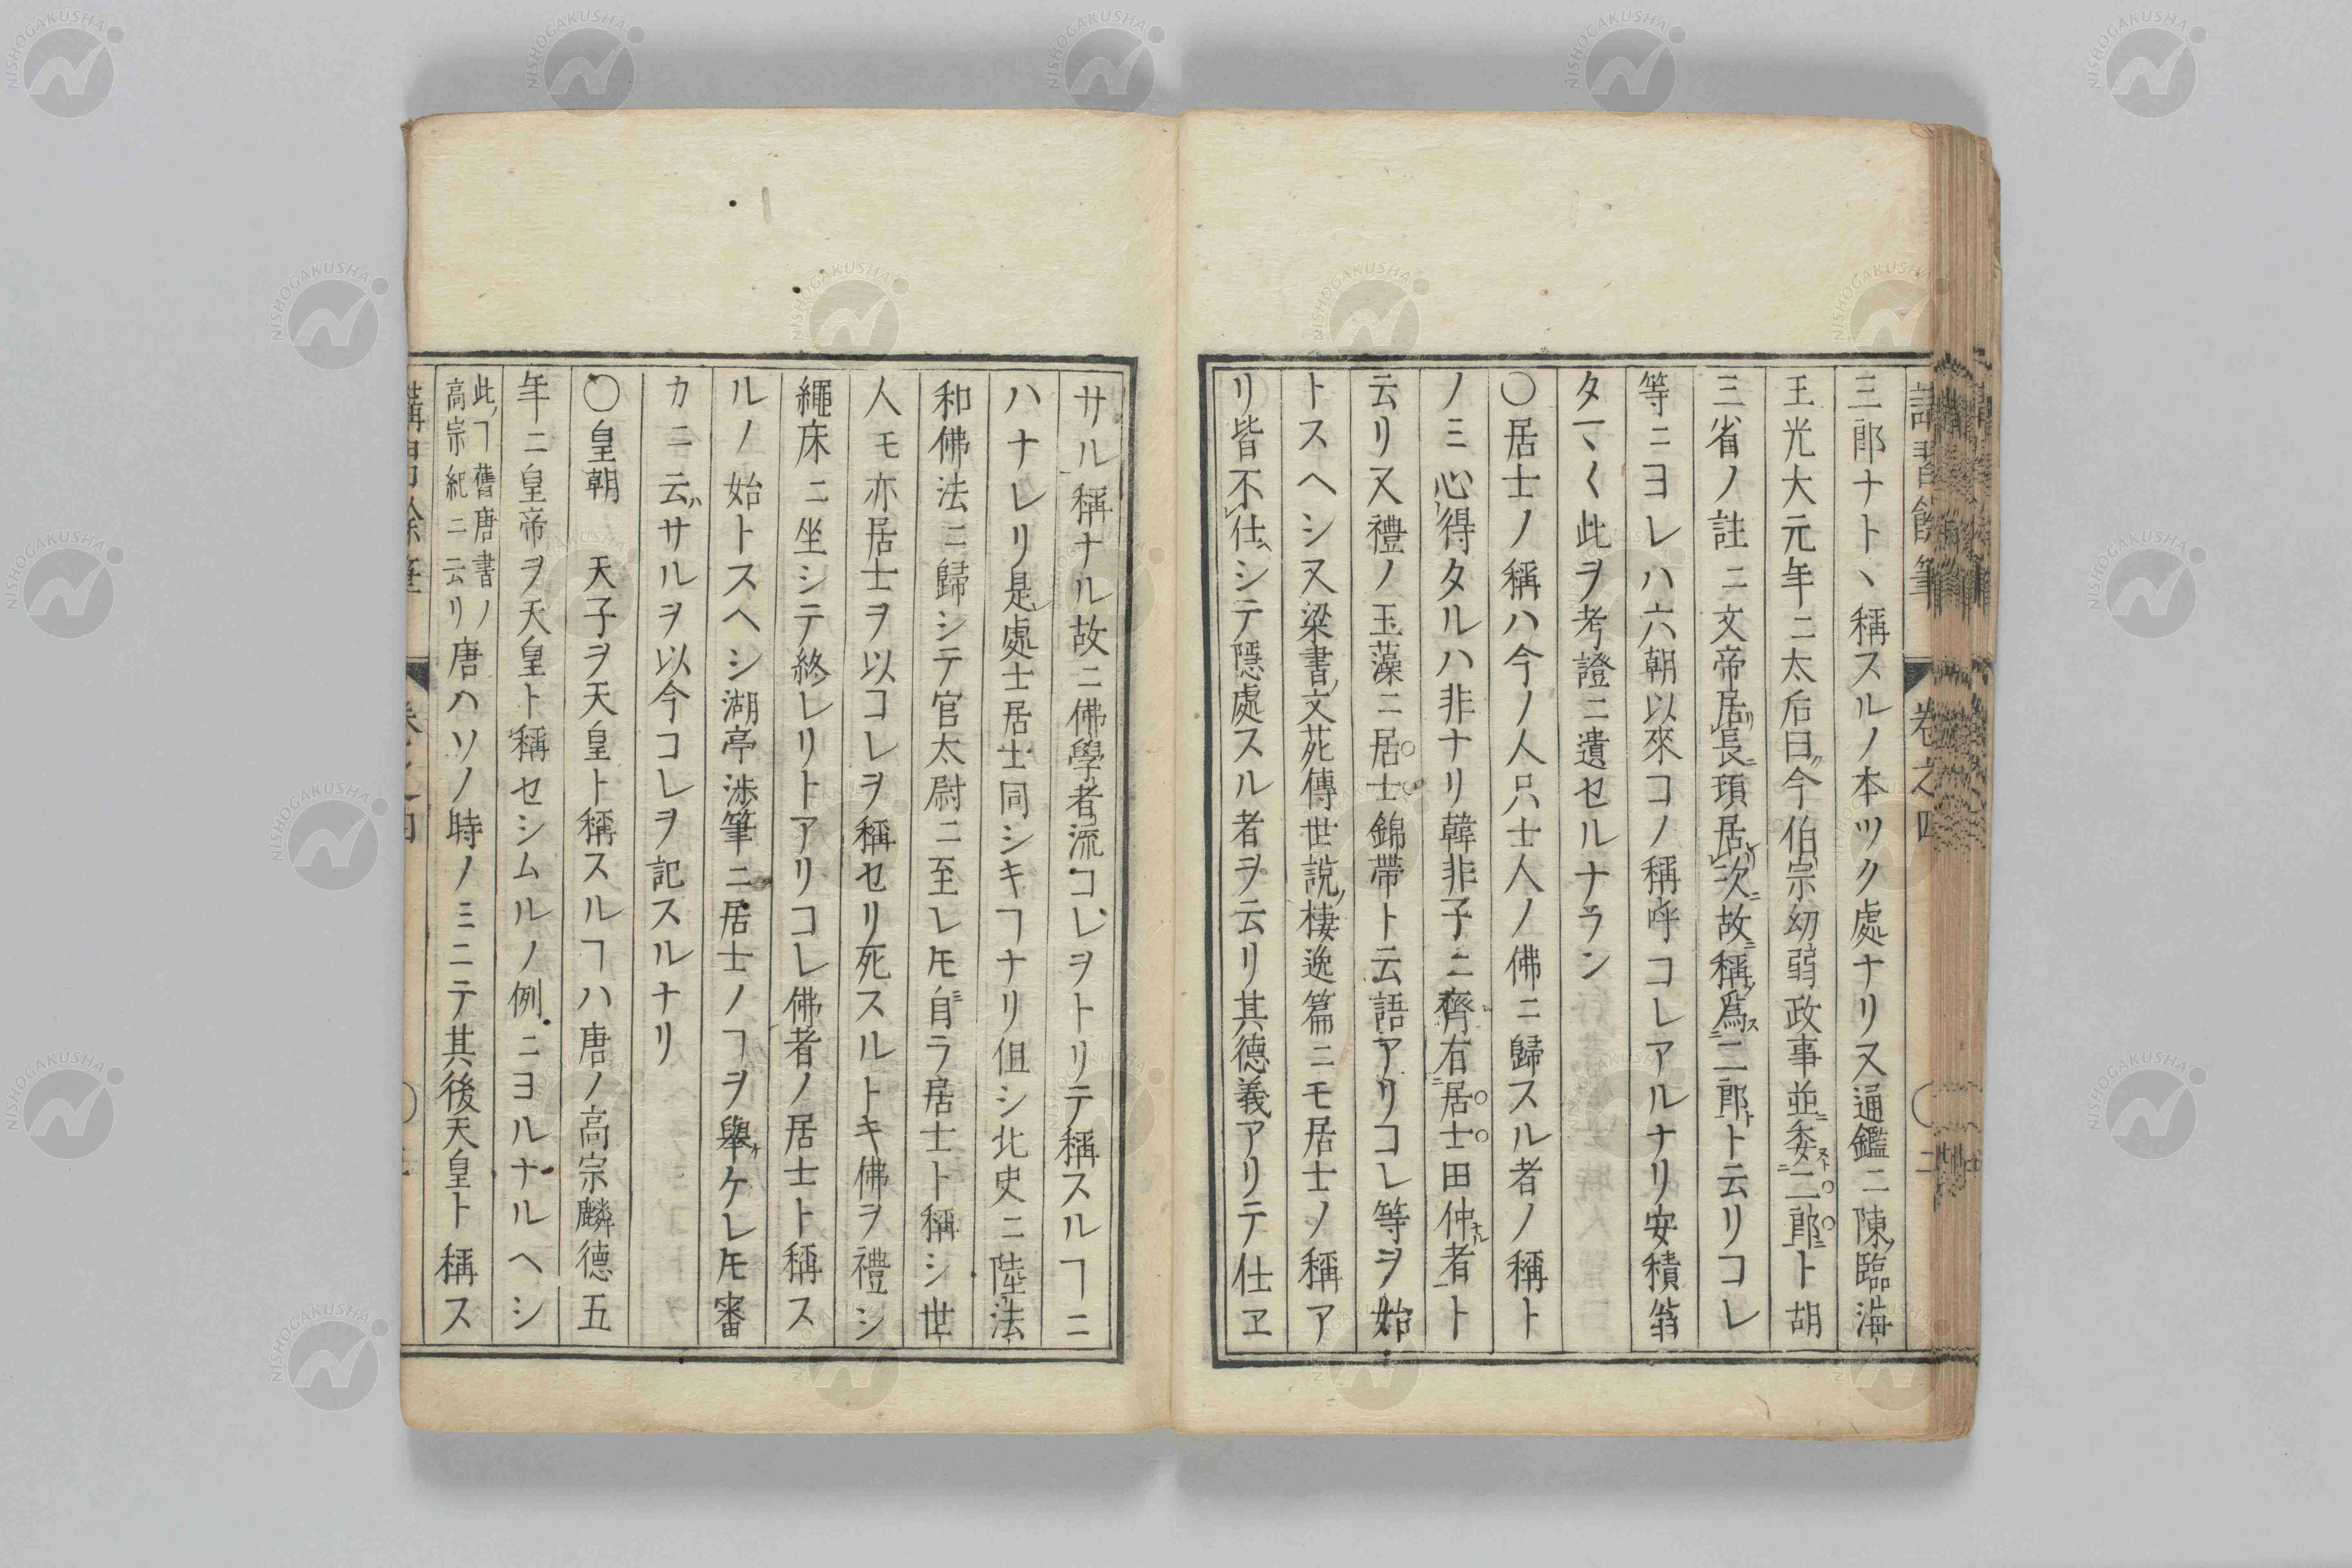 三郎ナトヽ稱スルノ本ツク處ナリ又通鑑ニ陳ノ臨海
王光大元年ニ太后曰今伯宗幼弱政事並ニ委ス二郎ニト胡
三省ノ註ニ文帝居長頊居次故ニ稱爲ス二郎トト云リコレ
等ニヨレハ六朝以來コノ稱呼コレアルナリ安積翁
タマ〱此ヲ考證ニ遺セルナラン
〇居士ノ稱ハ今ノ人只士人ノ佛ニ歸スル者ノ稱ト
ノミ心得タルハ非ナリ韓非子ニ齊ニ有居士田仲ナル者ト
云リ又禮ノ玉藻ニ居士錦帶ト云語アリコレ等ヲ始
トスヘシ又梁書ノ文苑傳世説ノ棲逸篇ニモ居士ノ稱ア
リ皆不仕ヘシテ隱處スル者ヲ云リ其德義アリテ仕ヱ
サル稱ナル故ニ佛學者流コレヲトリテ稱スルヿニ
ハナレリ是レ處士居士同シキヿナリ但シ北史ニ陸法
和佛法ニ歸シテ官太尉ニ至レ𪜈自ミラ居士ト稱シ世
人モ亦居士ヲ以コレヲ稱セリ死スルトキ佛ヲ禮シ
繩床ニ坐シテ終レリトアリコレ佛者ノ居士ト稱ス
ルノ始トスヘシ湖亭渉筆ニ居士ノヿヲ擧ケレ𪜈審
カニ云ハサルヲ以今コレヲ記スルナリ
〇皇朝 天子ヲ天皇ト稱スルヿハ唐ノ高宗麟德五
年ニ皇帝ヲ天皇ト稱セシムルノ例ニヨルナルヘシ
此ノヿ舊唐書ノ
高宗紀ニ云リ
唐ハソノ時ノミニテ其後天皇ト稱ス
講習餘筆 卷之四 二